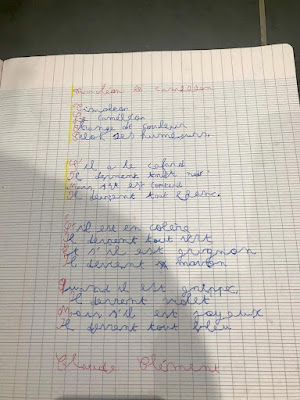 caméléon le caméléon
Le caméléon
Change de couleur
Selon ses humeurs.
S'il a le cafard
Il devient tout noir
Mais s'il est content
Il devient tout blanc.
S'il est en colère
Il devient tout vert
Et s'il est grognon
Il devient marron
Quand il est grippé,
Il devient violet
Mais s'il est joyeux
Il devient tout bleu
Claude Clément